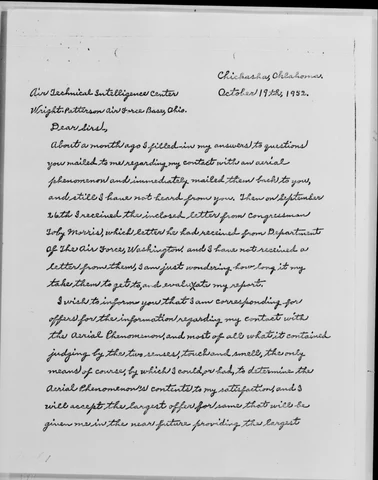 Chickasha, Oklahoma.
Air Technical Intelligence Center October 19th, 1952.
Wright-Patterson Air Force Base, Ohio.
Dear Sirs!,
About a month ago I filled in my answers to questions
you mailed to me regarding my contact with an aerial
phenomenon and immediately mailed them back to you,
and still I have not heard from you. Then on September
26th I received the inclosed letter from Congressman
Toby Morris, which letter he had received from Department
Of The Air Force, Washington, and I have not received a
letter from them, I am just wondering how long it my
take them to get to, and evaluate my report.
I wish to informe you that I am corresponding for
offers, for the information regarding my contact with
the Aerial Phenomenon, and most of all what it contained
judging by the two senses, touch and smell, the only
means of course, by which I could, or had, to determine the
Aerial Phenomenons' contints to my satisfaction, and I
will accept the largest offer for same that will be
given me in the near future providing the largest